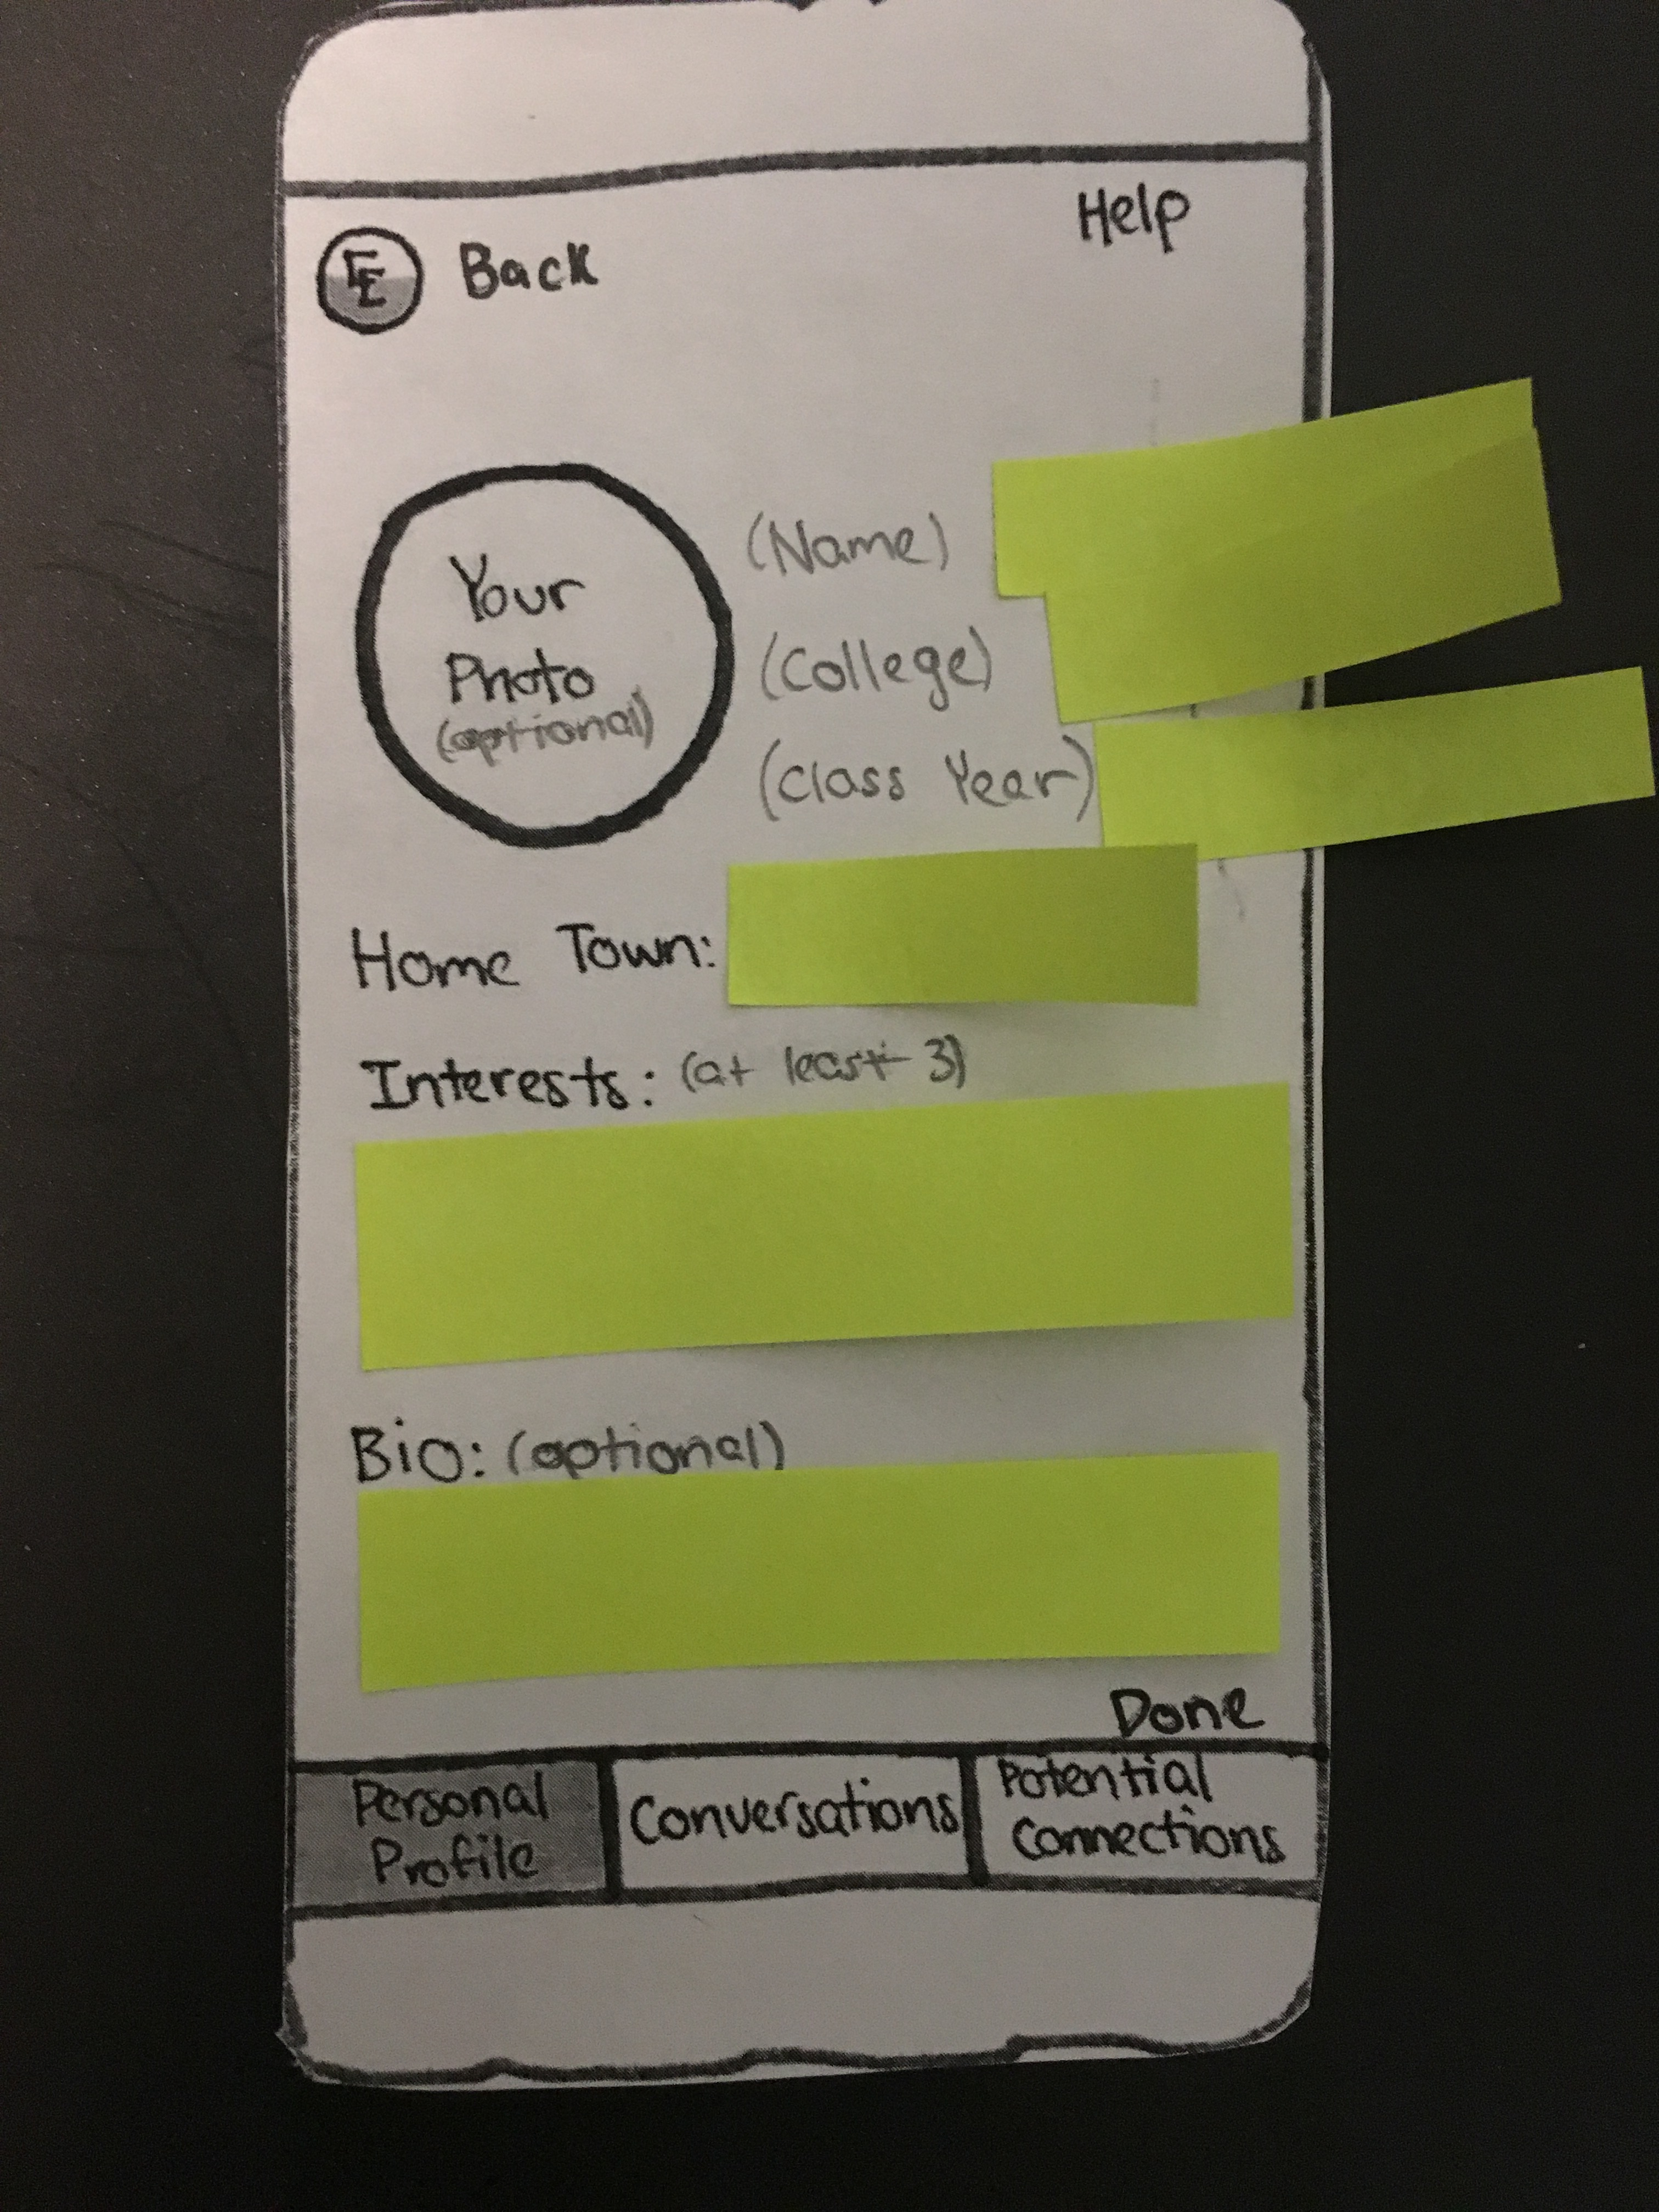 Help
EE Back
Your
Photo
(optional)
(Name)
(College)
(Class Year)
Home Town:
Interests: (at least 3)
Bio: (optional)
Done
Personal
Profile
Conversations
Potential
Connections